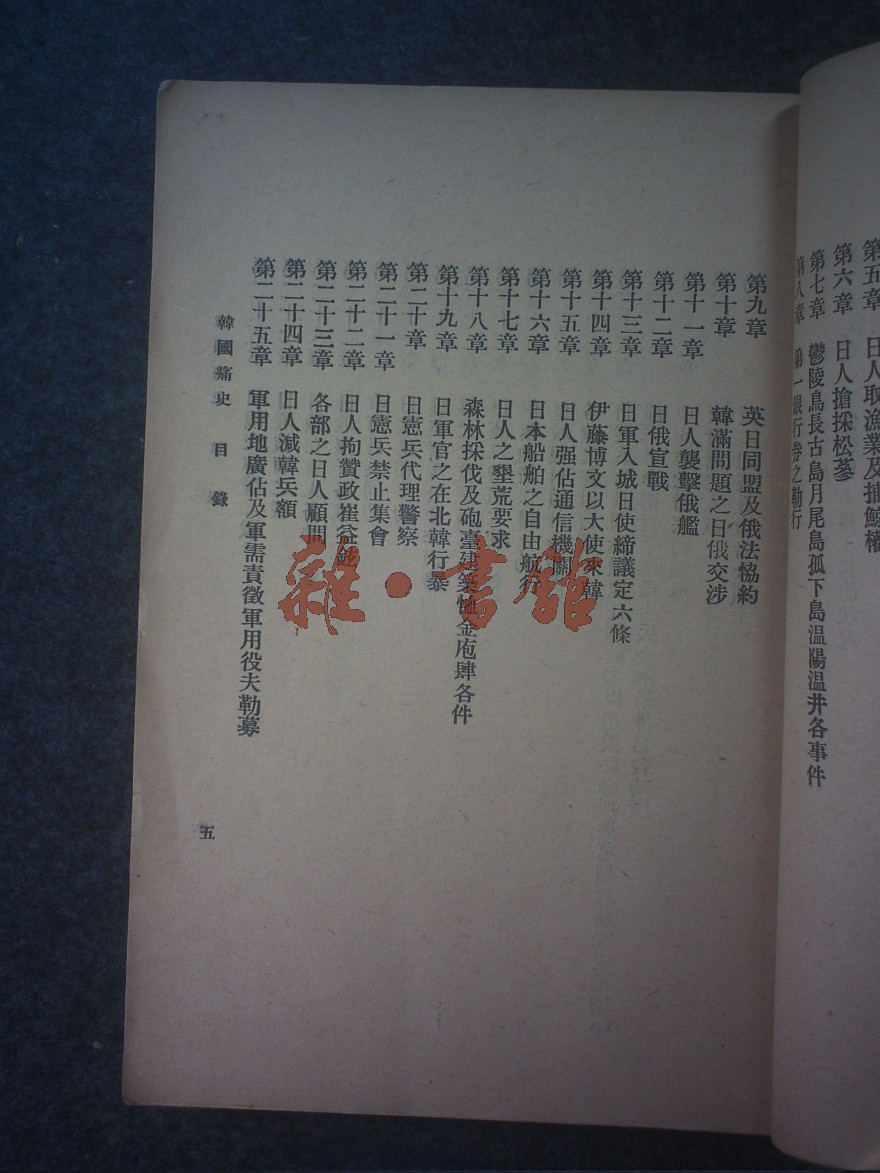 第五章　日人取漁業及捕鯨權
第六章　日人搶採松蔘
第七章　鬱陵島長古島月尾島孤下島温陽温井各事件
第八章　第一銀行券之勒行
第九章　英日同盟及俄法恊約
第十章　韓滿問題之日俄交涉
第十一章　日人襲擊俄艦
第十二章　日俄宣戰
第十三章　日軍入城日使締議定六條
第十四章　伊藤博文以大使來韓
第十五章　日人强佔通信機關
第十六章　日本船舶之自由航行
第十七章　日人之墾荒要求
第十八章　森林採伐及砲臺建築恤金庖肆各件
第十九章　日軍官之在北韓行暴
第二十章　日憲兵代理警察
第二十一章　日憲兵禁止集會
第二十二章　日人拘贊政崔益鉉
第二十三章　各部之日人顧問
第二十四章　日人減韓兵額
第二十五章　軍用地廣佔及軍需責徵軍用役夫勒募
韓國痛史　目錄
五
雜·書館